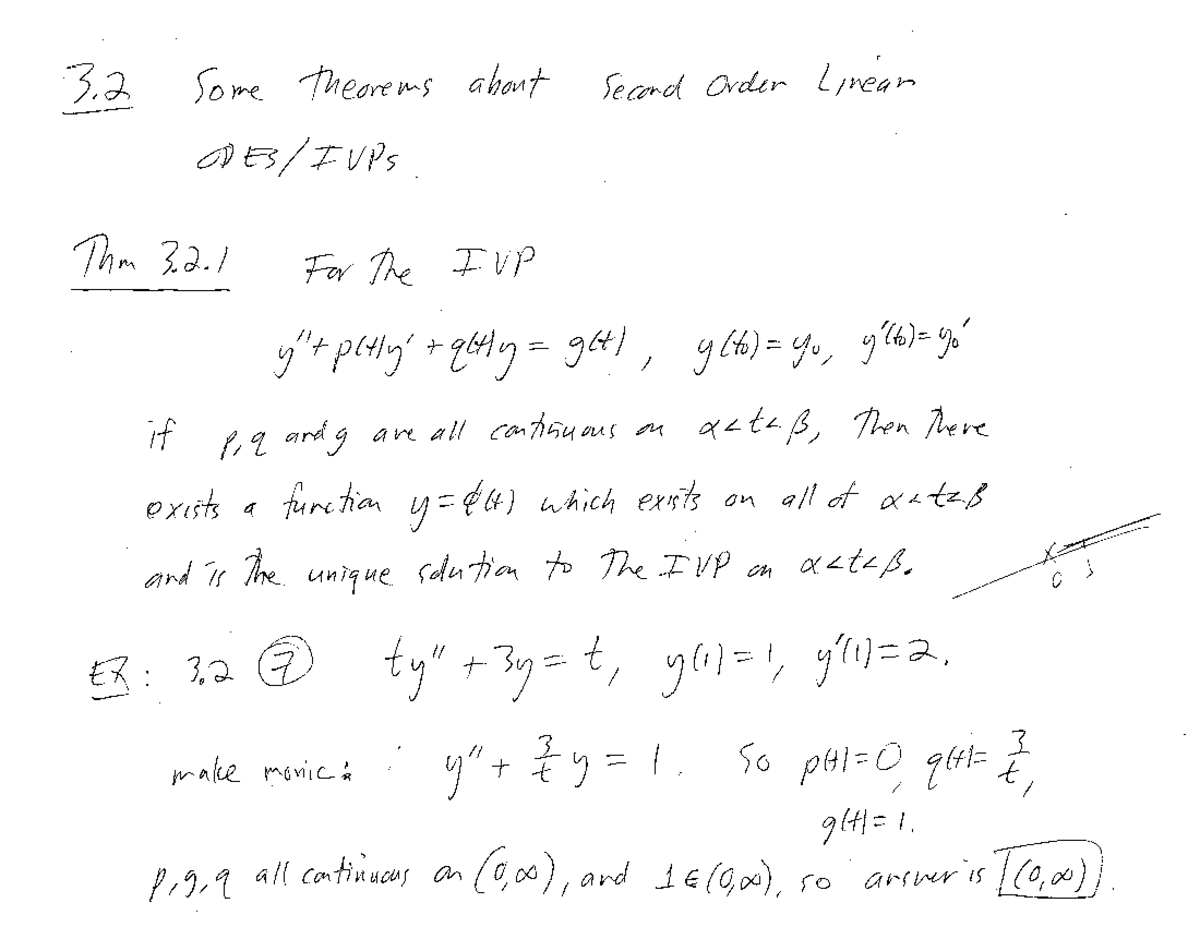 3.2 Some Theorems about Second Order Linear
ODES/IVPs.
Thm 3.2.1 For The IVP
y"+p(t)y' + q(t)y = g(t), y(t₀)=y₀, y'(t₀)=y₀'
if p,q and g are all continuous on α<t<β, Then There
exists a function y=ϕ(t) which exists on all of α<t<β
and is The unique solution to The IVP on α<t<β.
0 1
EX: 3.2 ⑦ ty" + 3y = t, y(1)=1, y'(1)=2.
make monic: y" + 3/t y = 1. So p(t)=0, q(t)= 3/t,
g(t)=1.
p,g,q all continuous on (0,∞), and 1∈(0,∞), so answer is (0,∞).